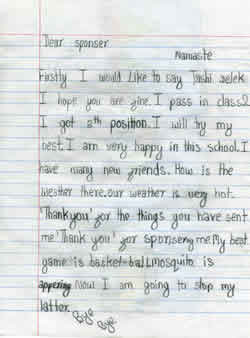 Dear sponser
Namaste
Firstly I would like to say Tashi delek
I hope you are fine. I pass in class2
I got 8th position. I will try my
best. I am very happy in this school. I
have many new friends. How is the
weather there. our weather is very hot.
'Thank you' for the things you have sent
me 'Thank you' for sponsering me. My best
game is basket-ball. mosquito is
appering Now I am going to stop my
latter.
Bye
Bye